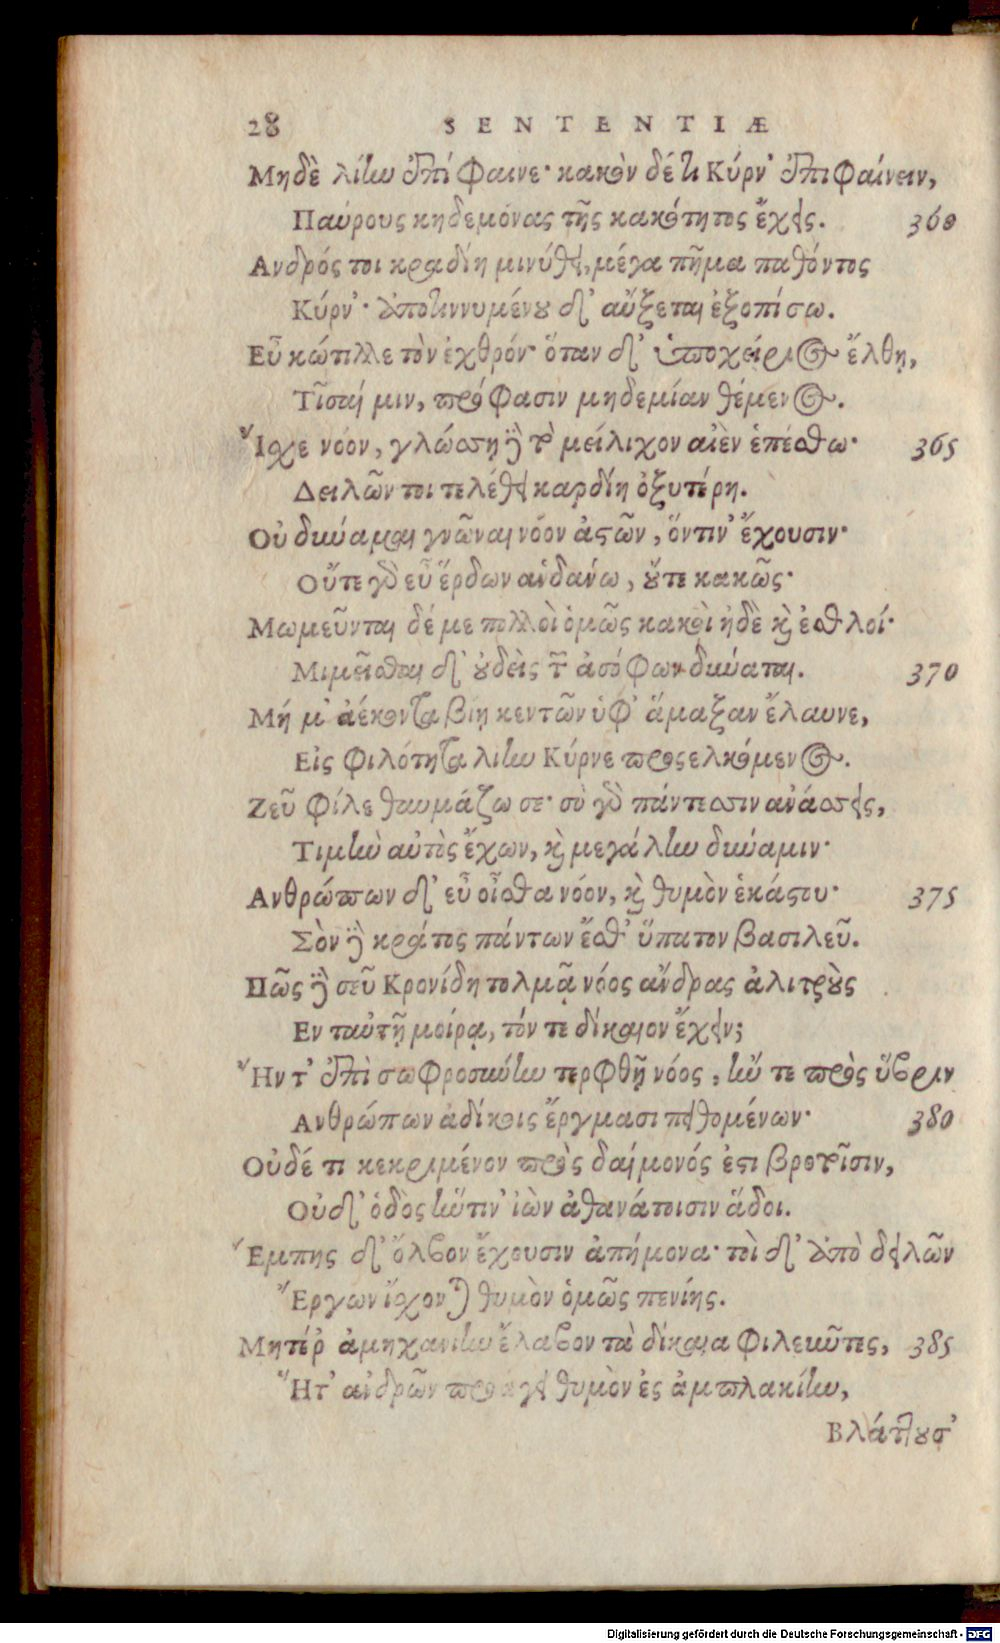 28 SENTENTIÆ
Μηδὲ λίην ἐπίφαινε· κακὸν δέ τι Κύρν' ἐπιφαίνειν,
Παύρους κηδεμόνας τῆς κακότητος ἔχεις. 360
Ανδρός τοι κραδίη μινύθει, μέγα πῆμα παθόντος
Κύρν'· ἀποτιννυμένου δ' αὔξεται ἐξοπίσω.
Εὖ κώτιλλε τὸν ἐχθρόν· ὅταν δ' ὑποχείριος ἔλθῃ,
Τῖσαί μιν, πρόφασιν μηδεμίαν θέμενος.
Ἴσχε νόον, γλώσσῃ δὲ τὸ μείλιχον αἰὲν ἐπέσθω· 365
Δειλῶν τοι τελέθει καρδίη ὀξυτέρη.
Οὐ δύναμαι γνῶναι νόον ἀστῶν, ὅντιν' ἔχουσιν·
Οὔτε γὰρ εὖ ἕρδων ἁνδάνω, οὔτε κακῶς·
Μωμεῦνται δέ με πολλοὶ ὁμῶς κακοὶ ἠδὲ καὶ ἐσθλοί·
Μιμεῖσθαι δ' οὐδεὶς τῶν ἀσόφων δύναται. 370
Μή μ' ἀέκοντα βίῃ κεντῶν ὑφ' ἅμαξαν ἔλαυνε,
Εἰς φιλότητα λίην Κύρνε προσελκόμενος.
Ζεῦ φίλε θαυμάζω σε· σὺ γὰρ πάντεσσιν ἀνάσσεις,
Τιμὴν αὐτὸς ἔχων, καὶ μεγάλην δύναμιν·
Ανθρώπων δ' εὖ οἶσθα νόον, καὶ θυμὸν ἑκάστου· 375
Σὸν δὲ κράτος πάντων ἔσθ' ὕπατον βασιλεῦ.
Πῶς δὲ σεῦ Κρονίδη τολμᾷ νόος ἄνδρας ἀλιτροὺς
Εν ταὐτῇ μοίρᾳ, τόν τε δίκαιον ἔχειν;
Ἤν τ' ἐπὶ σωφροσύνην τερφθῇ νόος, ἤν τε πρὸς ὕβριν
Ανθρώπων ἀδίκοις ἔργμασι πειθομένων· 380
Οὐδέ τι κεκριμένον πρὸς δαίμονός ἐστι βροτοῖσιν,
Οὐδ' ὁδὸς ἥντιν' ἰὼν ἀθανάτοισιν ἅδοι.
Ἔμπης δ' ὄλβον ἔχουσιν ἀπήμονα· τοὶ δ' ἀπὸ δειλῶν
Ἔργων ἴσχον δὲ θυμὸν ὁμῶς πενίης.
Μητέρ ἀμηχανίην ἔλαβον τὰ δίκαια φιλεῦντες, 385
Ἥτ' ἀνδρῶν προάγει θυμὸν ἐς ἀμπλακίην,
Βλάπτουσ'
Digitalisierung gefördert durch die Deutsche Forschungsgemeinschaft - DFG